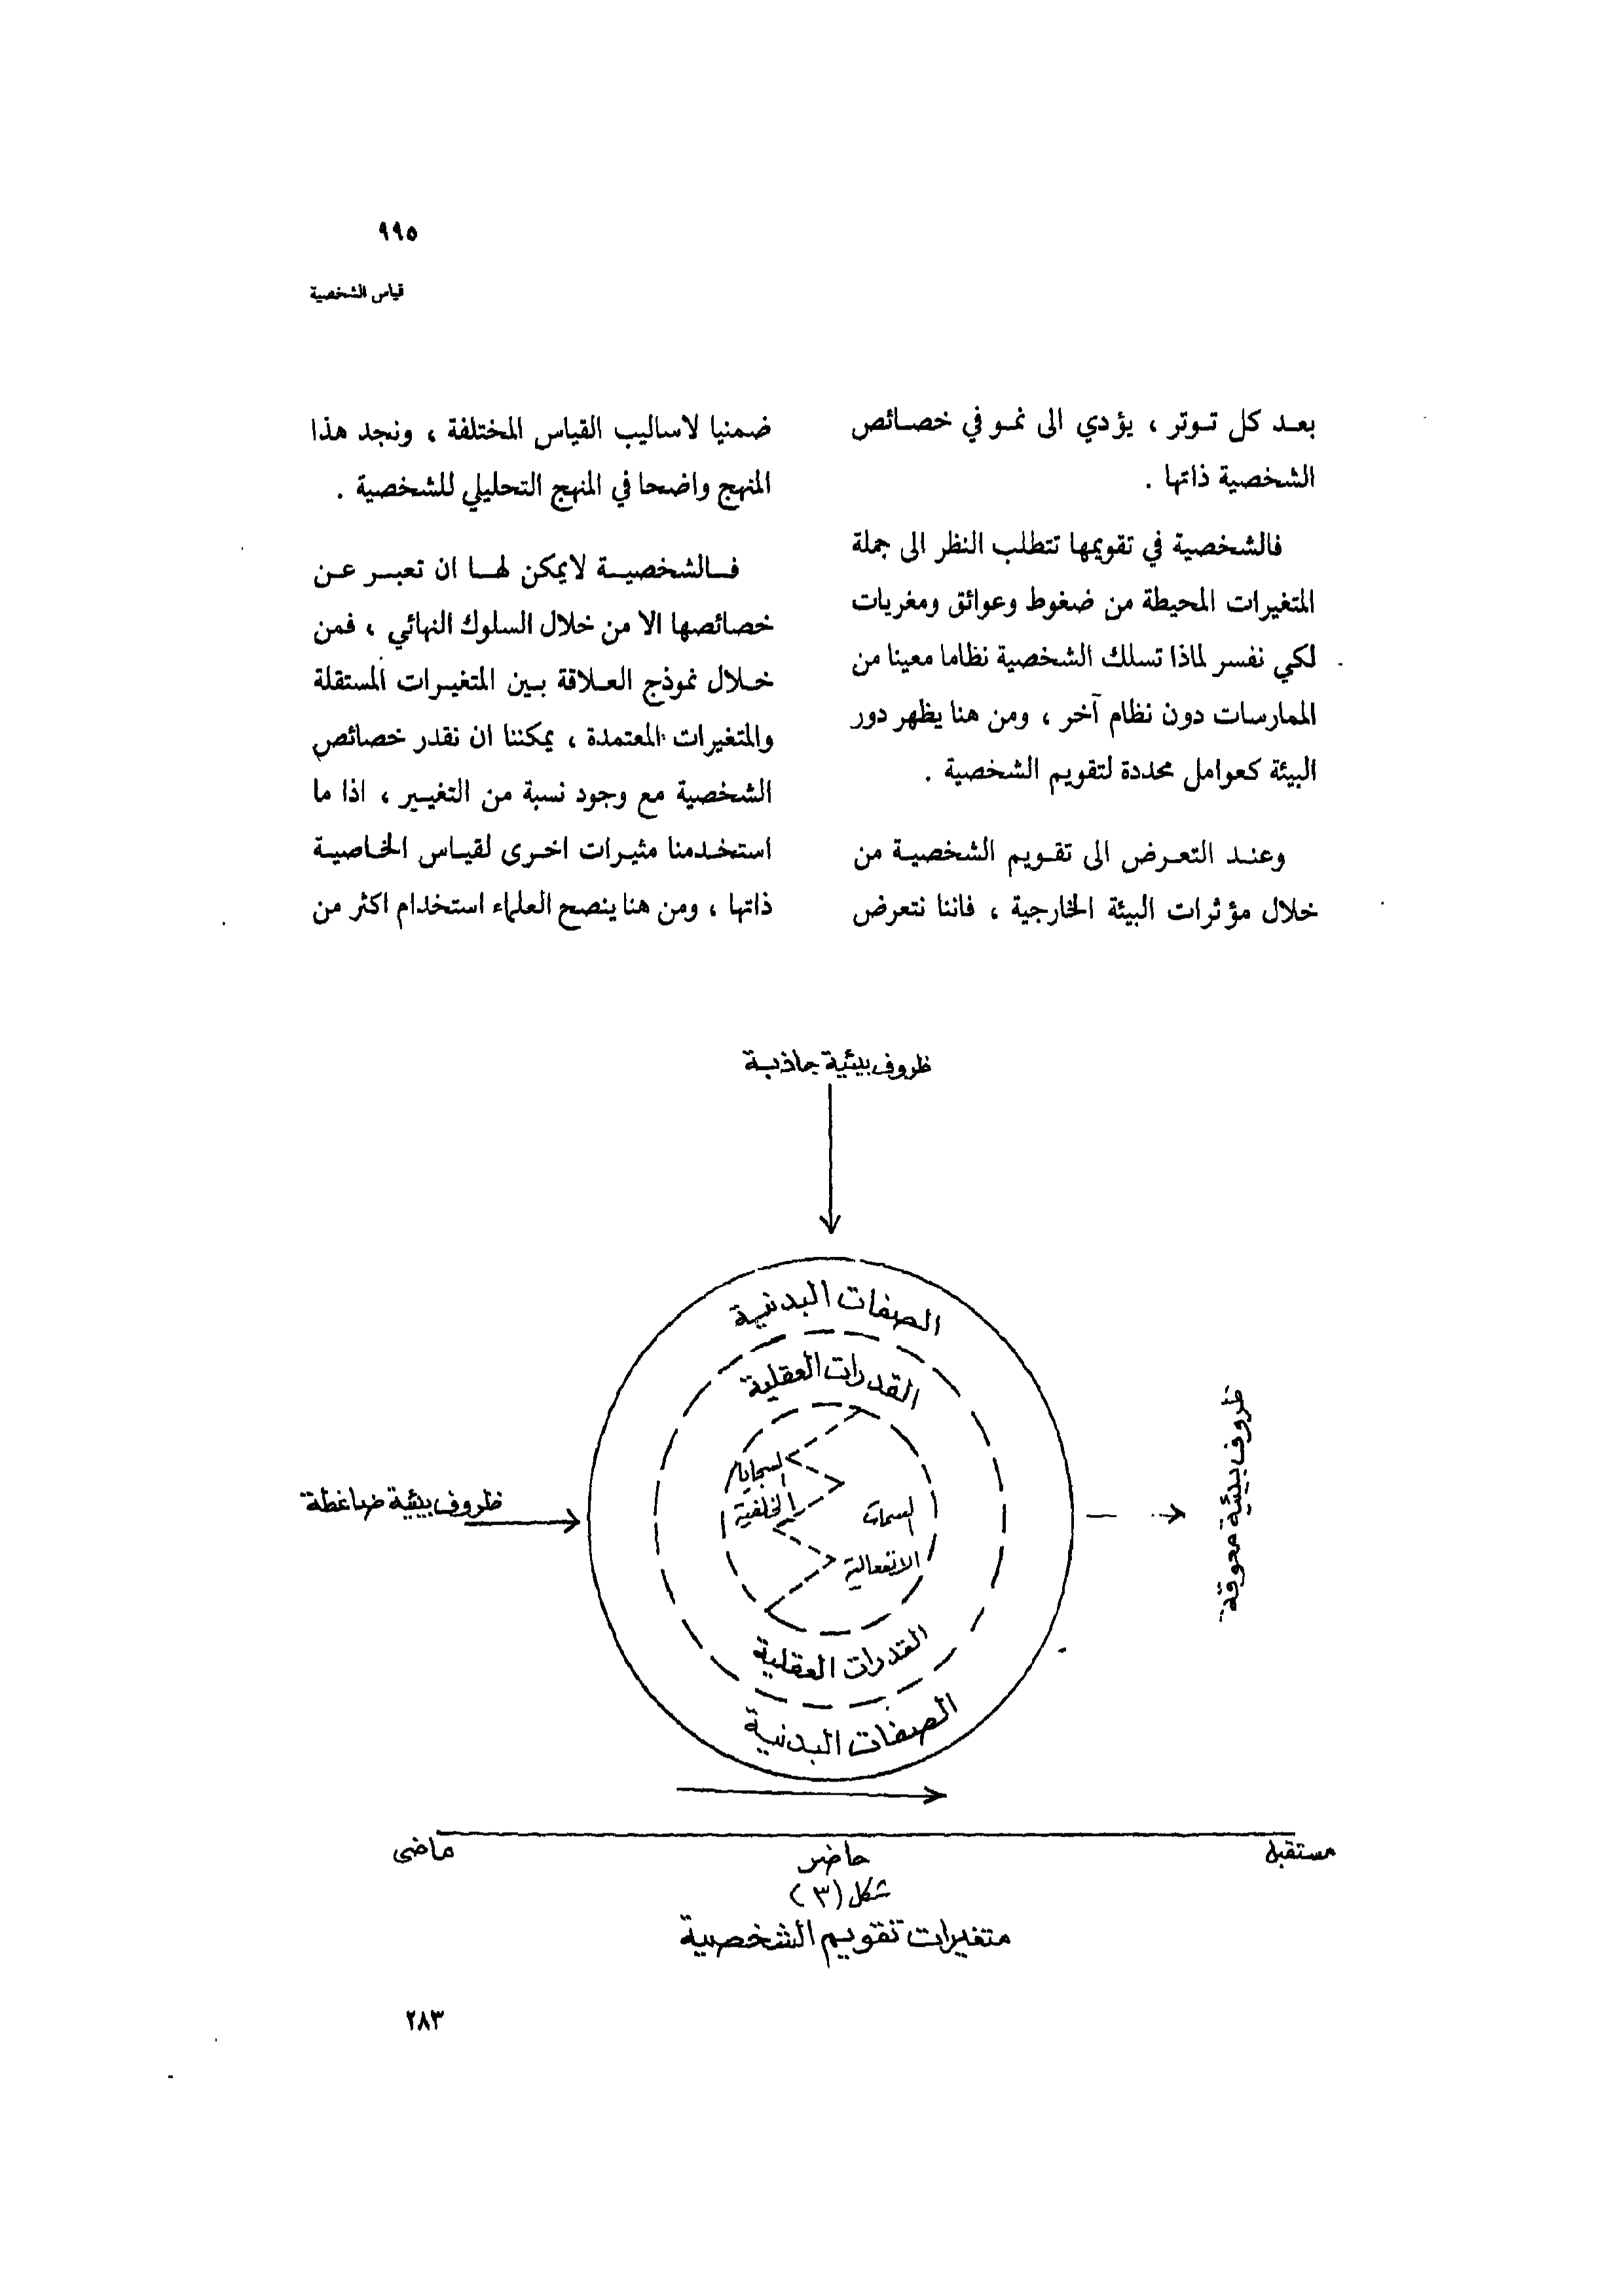 ٩٩٥
قياس الشخصية
بعد كل توتر ، يؤدي الى نمو في خصائص
الشخصية ذاتها .
فالشخصية في تقويمها تتطلب النظر الى جملة
المتغيرات المحيطة من ضغوط وعوائق ومغريات
لكي نفسر لماذا تسلك الشخصية نظاما معينا من
الممارسات دون نظام آخر ، ومن هنا يظهر دور
البيئة كعوامل محددة لتقويم الشخصية .
وعند التعرض الى تقويم الشخصية من
خلال مؤثرات البيئة الخارجية ، فاننا نتعرض
ضمنيا لاساليب القياس المختلفة ، ونجد هذا
المنهج واضحا في المنهج التحليلي للشخصية .
فالشخصية لايمكن لها ان تعبر عن
خصائصها الا من خلال السلوك النهائي ، فمن
خلال نموذج العلاقة بين المتغيرات المستقلة
والمتغيرات المعتمدة ، يمكننا ان نقدر خصائص
الشخصية مع وجود نسبة من التغيير ، اذا ما
استخدمنا مثيرات اخرى لقياس الخاصية
ذاتها ، ومن هنا ينصح العلماء استخدام اكثر من
ظروف بيئية جاذبة
الصفات البدنية
القدرات العقلية
السجايا
الخلقية
السمات
الانفعالية
القدرات العقلية
الصفات البدنية
ظروف بيئية ضاغطة
ظروف بيئية معوقة
مستقبل
حاضر
ماضى
شكل (٣)
متغيرات تقويم الشخصية
٢٨٣